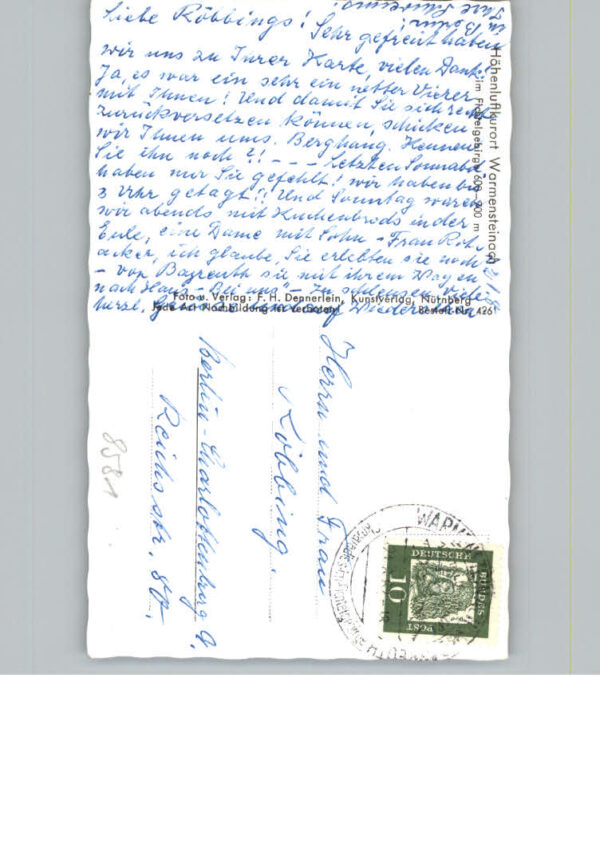 Liebe Röbbings! Sehr gefreut haben
wir uns zu Ihrer Karte, vielen Dank!
Ja, es war ein sehr ein netter Vierer
mit Ihnen! Und damit Sie sich recht
zurückversetzen können, schicken
wir Ihnen uns. Berghang. Kennen
Sie ihn noch?! --- Letzten Sonnabd
haben nur Sie gefehlt! wir haben bis
3 Uhr getagt!! Und Sonntag waren
wir abends mit Kuchenbrods in der
Eule, eine Dame mit Sohn - Frau Rot
acker, ich glaube, Sie erlebten sie noch
- von Bayreuth sie mit ihrem Wagen
nach Haus - Bei uns" - Viele
herzl. Wiedersehn
in Berlin!
Ihre
Höhenluftkurort Warmensteinach
im Fichtelgebirge 600-900 m
Foto u. Verlag: F. H. Dennerlein, Kunstverlag, Nürnberg
Jede Art Nachbildung ist verboten! Bestell-Nr. 426
Herrn und Frau
Röbbing.
Berlin-Charlottenburg 9.
Reichsstr. 89.
8581
WARME
DEUTSCHE
BUNDES
POST
10